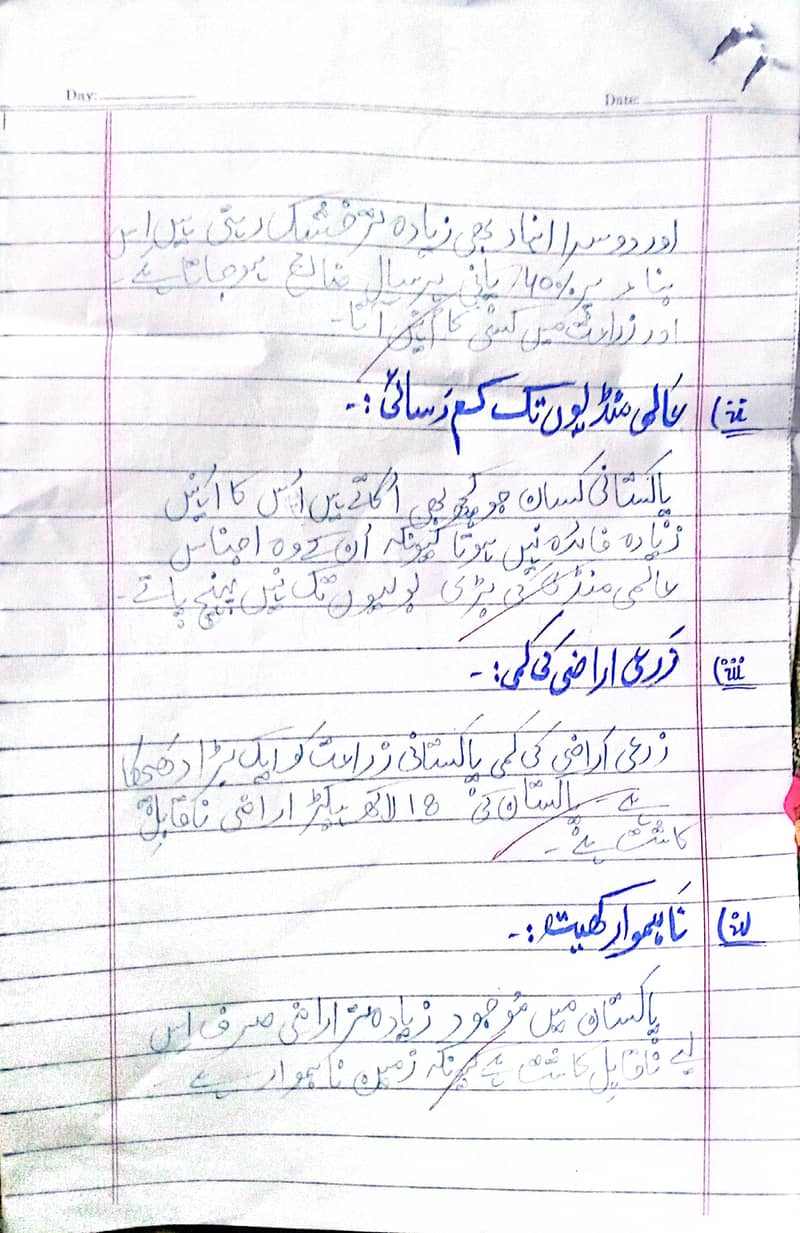 Day:
Date:
اور دوسرا انہار بھی زیادہ تر خشک رہتی ہیں اس
بناء پر 40% پانی ہر سال ضائع ہو جاتا ہے۔
اور زراعت میں کسی کام نہیں آتا۔
(ii عالمی منڈیوں تک کم رسائی:۔
پاکستانی کسان جو کچھ بھی اگاتے ہیں اُس کا اُنہیں
زیادہ فائدہ نہیں ہوتا کیونکہ اُن کے وہ اجناس
عالمی منڈی کی بڑی بولیوں تک نہیں پہنچ پاتے۔
(iii زرعی اراضی کی کمی:۔
زرعی اراضی کی کمی پاکستانی زراعت کو ایک بڑا دھچکا
ہے۔ پاکستان کی 18 لاکھ ہیکٹر اراضی ناقابل
کاشت ہے۔
(iv ناہموار کھیت:۔
پاکستان میں موجود زیادہ تر اراضی صرف اس
لیے ناقابل کاشت ہے کیونکہ زمین ناہموار ہے۔